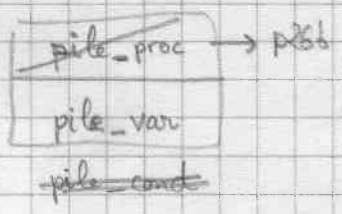 pile_proc → p266
pile_var
pile_cond